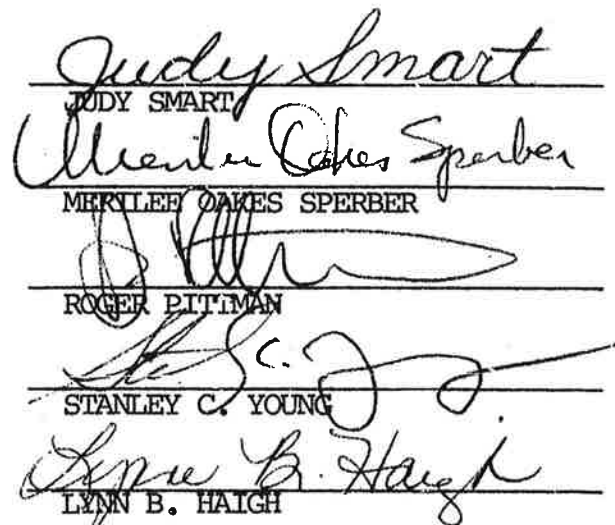 Judy Smart
JUDY SMART
Merilee Oakes Sperber
MERILEE OAKES SPERBER
ROGER PITTMAN
C.
STANLEY C. YOUNG
Lynn B. Haigh
LYNN B. HAIGH